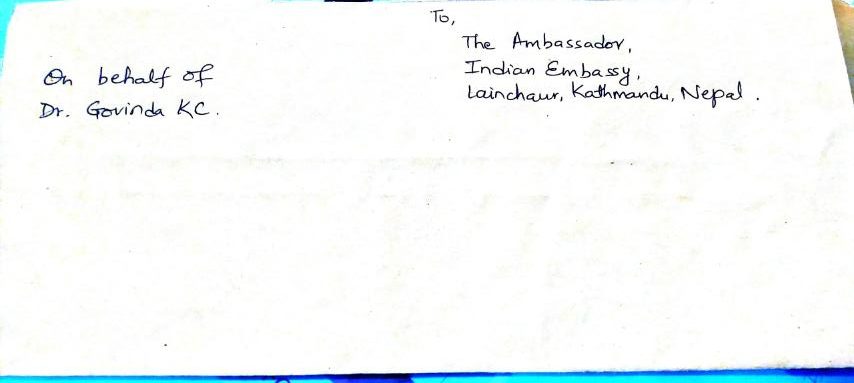 To,
The Ambassador,
Indian Embassy,
Lainchaur, Kathmandu, Nepal.
On behalf of
Dr. Govinda KC.